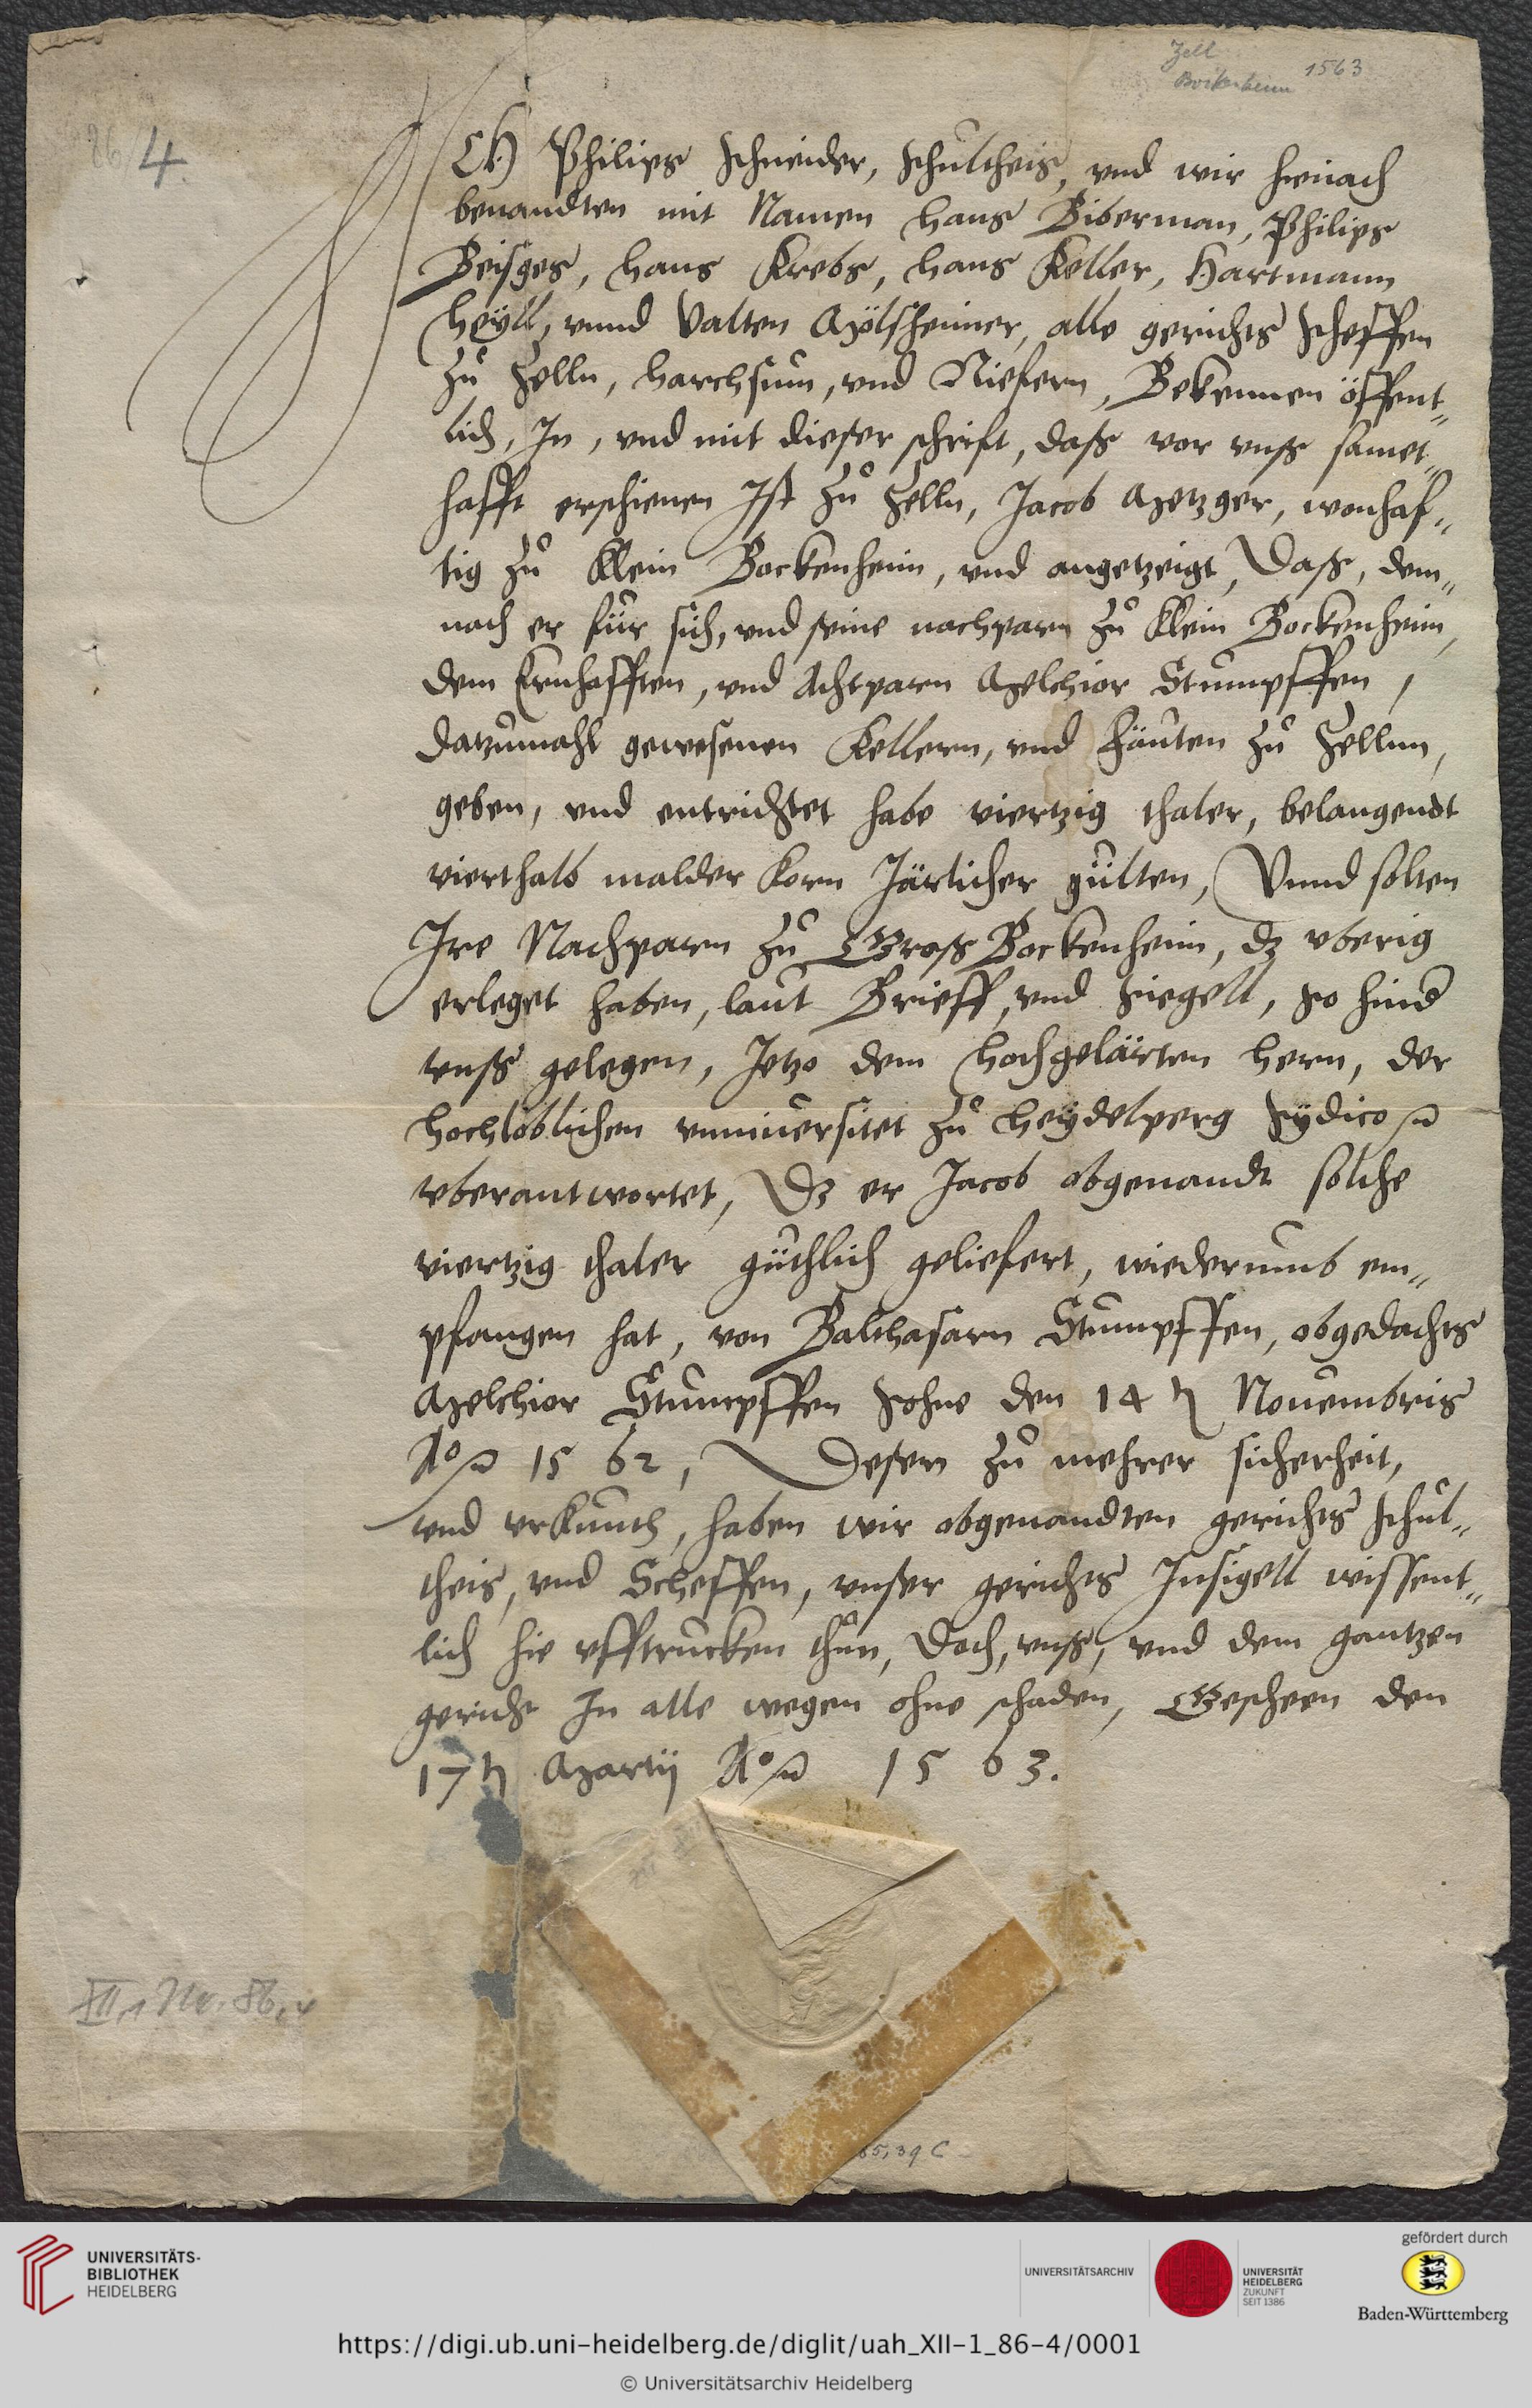 Zell
Bockenheim 1563
86/4.
ICH Philips Schneider, Schultheis, vnd wir hienach
benandten mit Namen Hans Biberman, Philips
Beisges, Hans Krebs, Hans Keller, Hartmann
Heyll, vnnd Valten Mölsheimer, alle gerichts Scheffen
zu Zelln, Harchsum, vnd Niefern, Bekennen öffent„
lich, In, vnd mit dieser schrift, daß vor vnß samet„
hafft erschienen Ist zu Zelln, Jacob Metzger, wonhaf„
tig zu Klein Bockenheim, vnd angetzeigt, Daß, dem„
nach er für sich, vnd seine nachparn zu Klein Bockenheim,
dem Ernhafften, vnd Achtparn Melchior Stumpffen,
datzumahl gewesenen Kellern, vnd Fäuten zu Zellnn,
geben, vnd entrichtet habe viertzig thaler, belangendt
vierthalb malder Korn Järlicher gülten, Vnnd solten
Ire Nachparn zu Groß Bockenheim, dz vberig
erleget haben, laut Brieff, vnd Siegell, so hind
vnß gelegen, Jetzo dem Hochgelärten Hern, der
Hochlöblichen vnniuersitet zu Heydelperg Sydico
vberantwortet, Dz er Jacob obgenandt solche
viertzig thaler güthlich geliefert, wiederumb em„
pfangen hat, von Balthasarn Stumpffen, obgedachts
Melchior Stumpffen Sohne den 14 tz Nouembris
Ao 1562, Desen zu mehrer sicherheit,
vnd vrKunth, haben wir obgenandten gerichts Schul„
theis, vnd Scheffen, vnser gerichts Insigell wissent„
lich hie vfftrucken thun, Doch, vnß, vnd dem gantzen
gericht In alle wegen ohne schaden, Gescheen den
17 tz Martij Ao 1563.
XII,1 Nr. 86,4
65,39 C
UNIVERSITÄTS-
BIBLIOTHEK
HEIDELBERG
UNIVERSITÄTSARCHIV
UNIVERSITÄT
HEIDELBERG
ZUKUNFT
SEIT 1386
gefördert durch
Baden-Württemberg
https://digi.ub.uni-heidelberg.de/diglit/uah_XII-1_86-4/0001
© Universitätsarchiv Heidelberg